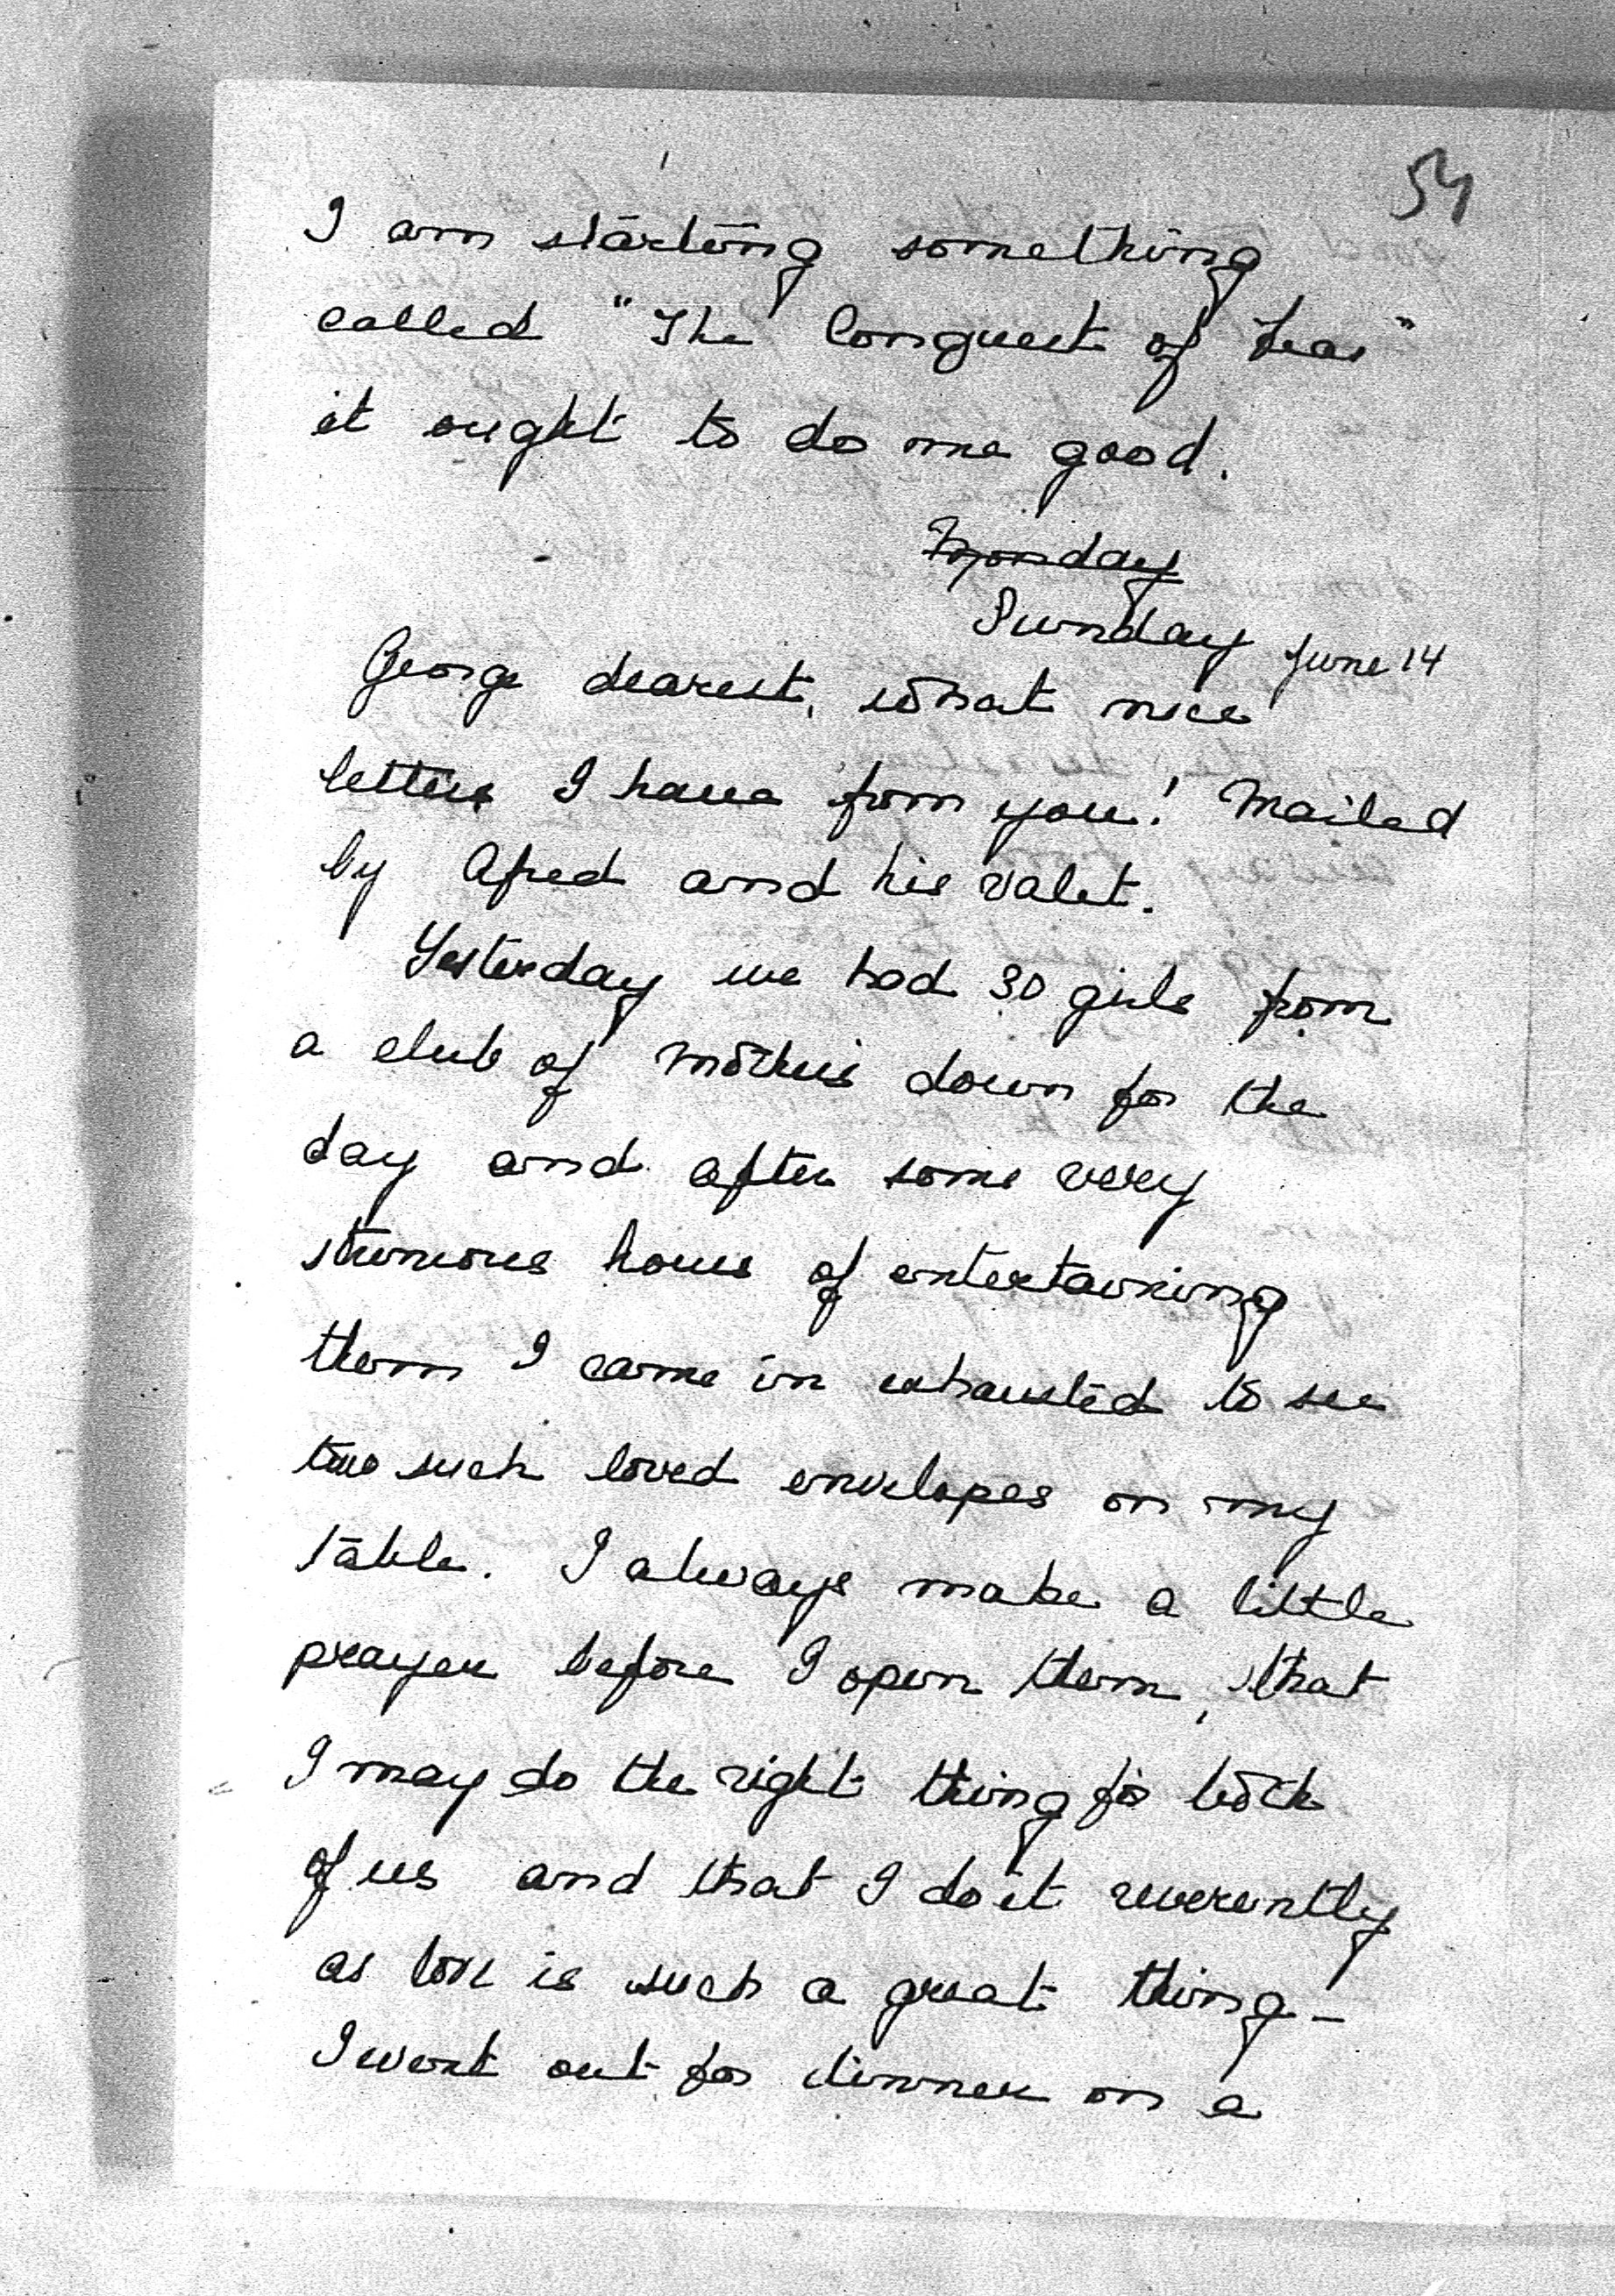 54
I am starting something
called "The Conquest of Fear"
it ought to do me good.
Monday
Sunday June 14
George dearest, what nice
letters I have from you! Mailed
by Afred and his valet.
Yesterday we had 30 girls from
a club of Mothers down for the
day and after some very
strenuous hours of entertaining
them I came in exhausted to see
two such loved envelopes on my
table. I always make a little
prayer before I open them, that
I may do the right thing for both
of us and that I do it reverently
as love is such a great thing—
I went out for dinner on a